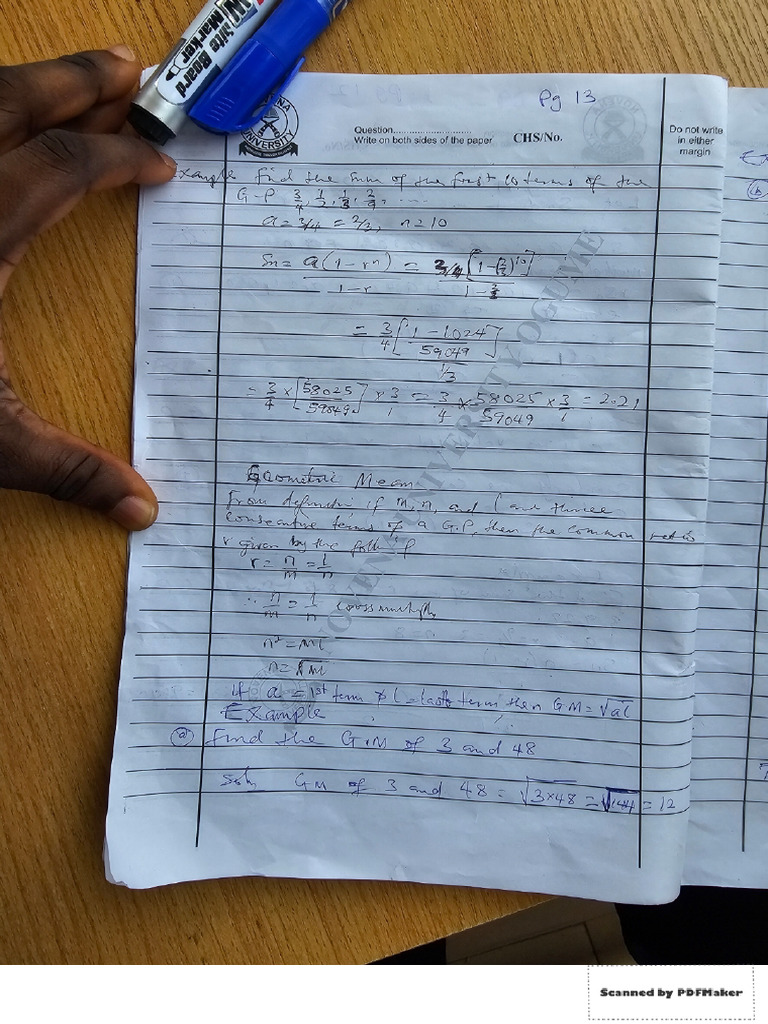 White Board
Marker
Pg 13
UNIVERSITY
Question............................
Write on both sides of the paper
CHS/No.
Do not write
in either
margin
Example Find the sum of the first 10 terms of the
G.P 3/4, 1/2, 1/3, 2/9, ....
a = 3/4 = 2/3, n = 10
Sn = a(1 - rⁿ) / 1 - r = 3/4 [1 - (2/3)¹⁰] / 1 - 2/3
= 3/4 [1 - 1024/59049] / 1/3
= 3/4 × [58025/59049] × 3/1 = 3/4 × 58025/59049 × 3/1 = 2.21
Geometric Mean
From definition if m, n, and l are three
consecutive terms of a G.P, then the common ratio
r given by the
r = n/m = l/n
∴ n/m = l/n cross multiply
n² = ml
n = √ml
If a = 1st term & l = last term then GM = √al
Example
(a) Find the G.M of 3 and 48
Soln GM of 3 and 48 = √3×48 = √144 = 12
Scanned by PDFMaker